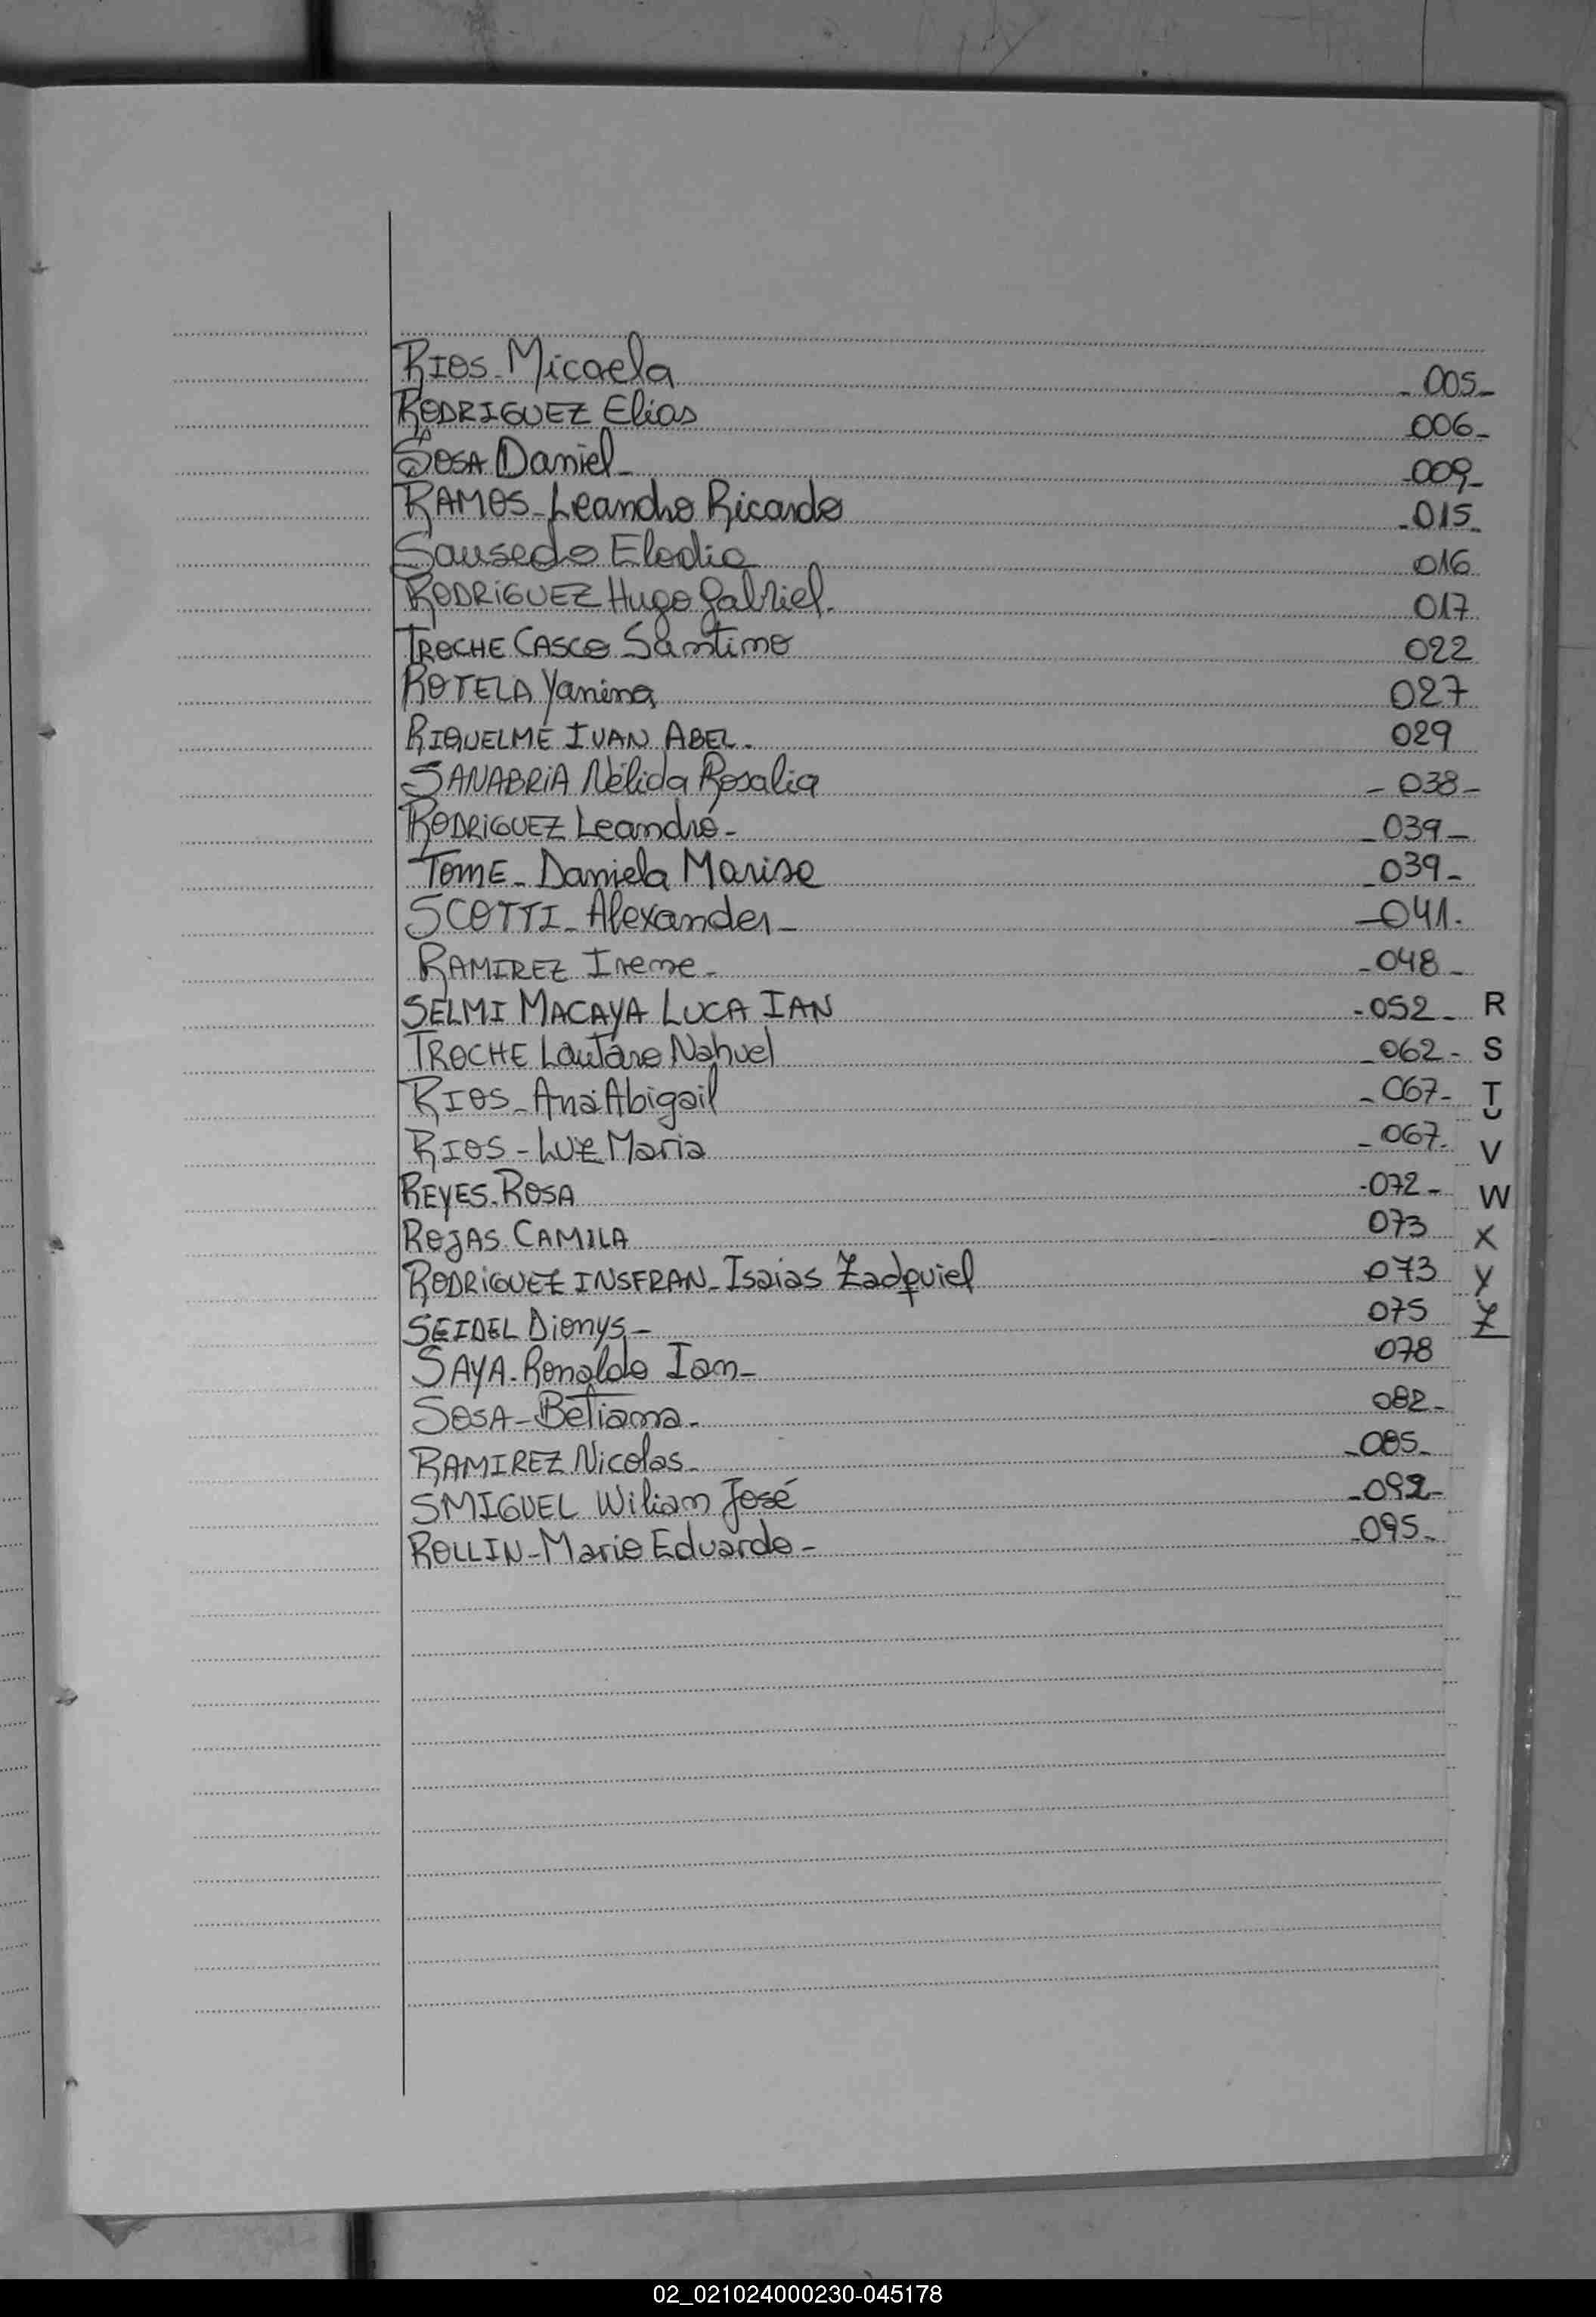 RIOS - Micaela - 005 -
RODRIGUEZ Elias 006 -
SOSA Daniel - - 009 -
RAMOS - Leandro Ricardo - 015 -
Sausedo Elodia 016
RODRIGUEZ Hugo Gabriel. 017
TROCHE CASCO Santino 022
ROTELA Yanina 027
RIQUELME IVAN ABEL. 029
SANABRIA Nélida Rosalia - 038 -
RODRIGUEZ Leandro - - 039 -
TOME - Daniela Marisa - 039 -
SCOTTI - Alexander - - 041 -
RAMIREZ Irene - - 048 -
SELMI MACAYA LUCA IAN - 052 - R
TROCHE Lautaro Nahuel - 062 - S
RIOS - Ana Abigail - 067 - T
U
RIOS - LUZ Maria - 067 - V
REYES - ROSA - 072 - W
ROJAS CAMILA 073 X
RODRIGUEZ INSFRAN - Isaias Zadquiel 073 Y
SEIDEL Dionys - 075 Z
SAYA - Ronaldo Ian - 078
SOSA - Betiana - 082 -
RAMIREZ Nicolas - - 085 -
SMIGUEL Wiliam José - 092 -
ROLLIN - Mario Eduardo - - 095 -
02_021024000230-045178